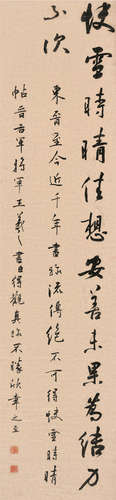 快雪時晴佳想安善未果為結力
不次
東晉至今近千年書跡流傳絕不可得快雪時晴
帖晉右軍將軍王羲之書得觀真跡不勝欣幸之至